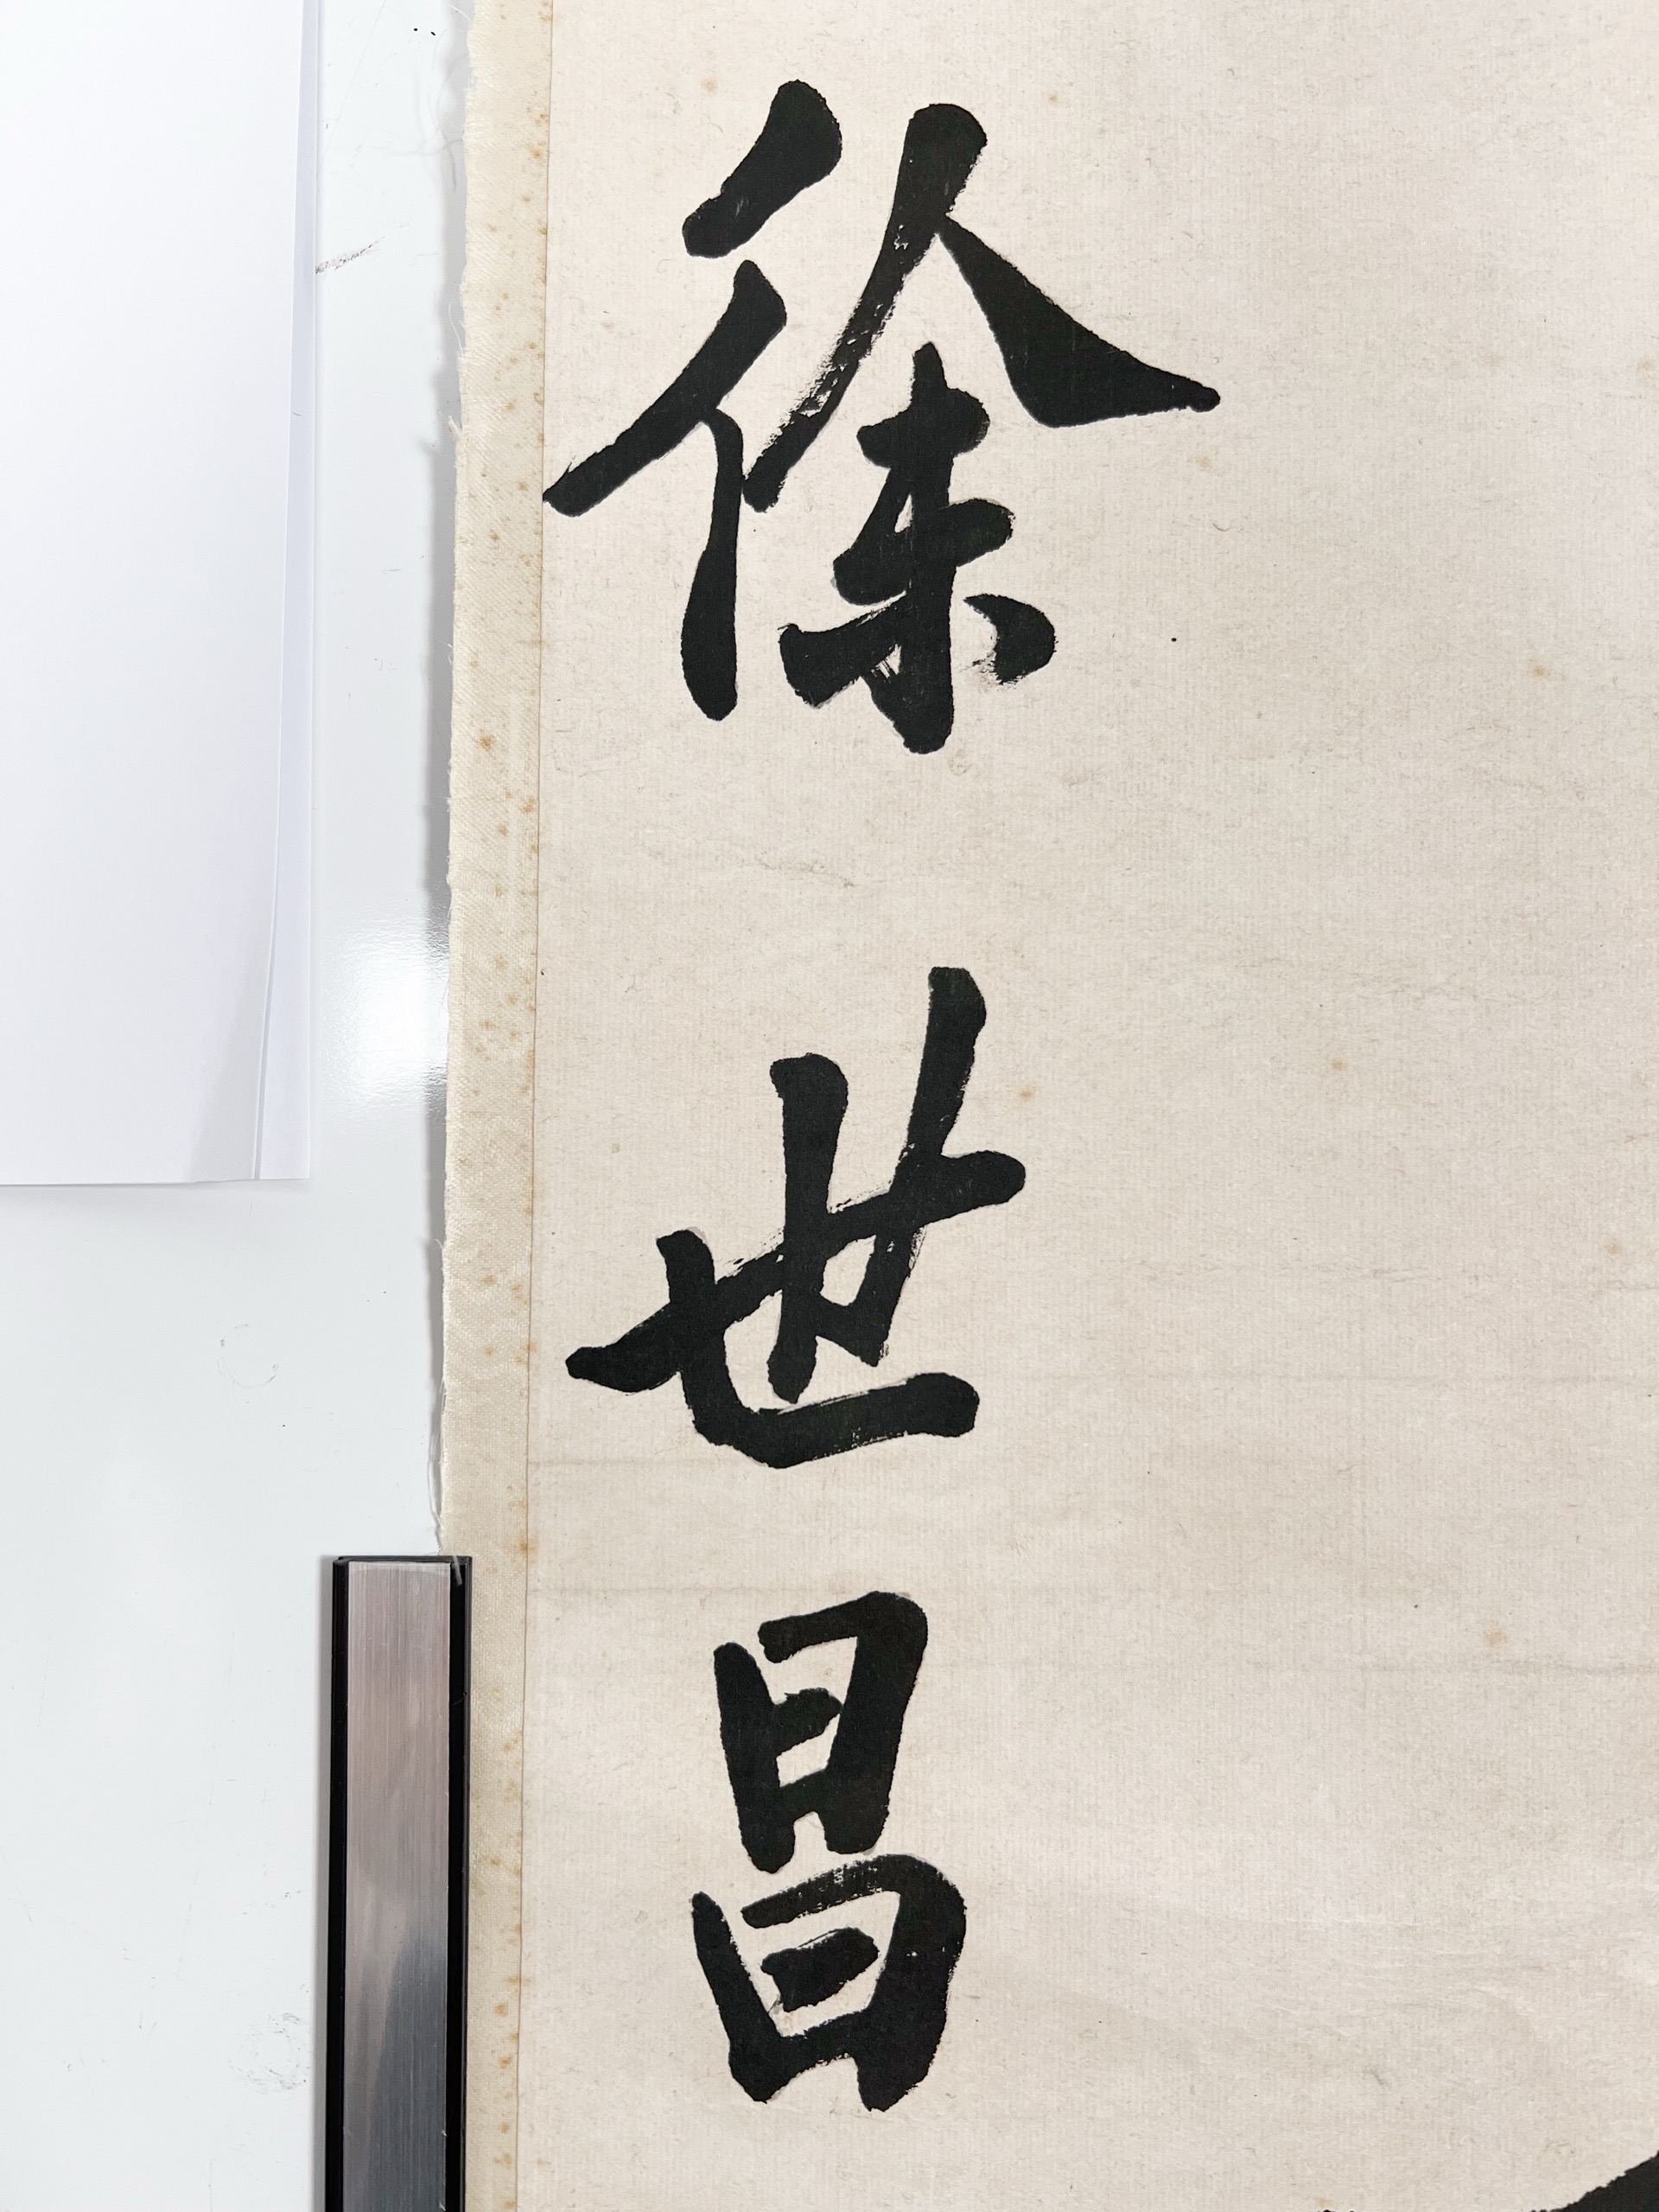 徐世昌